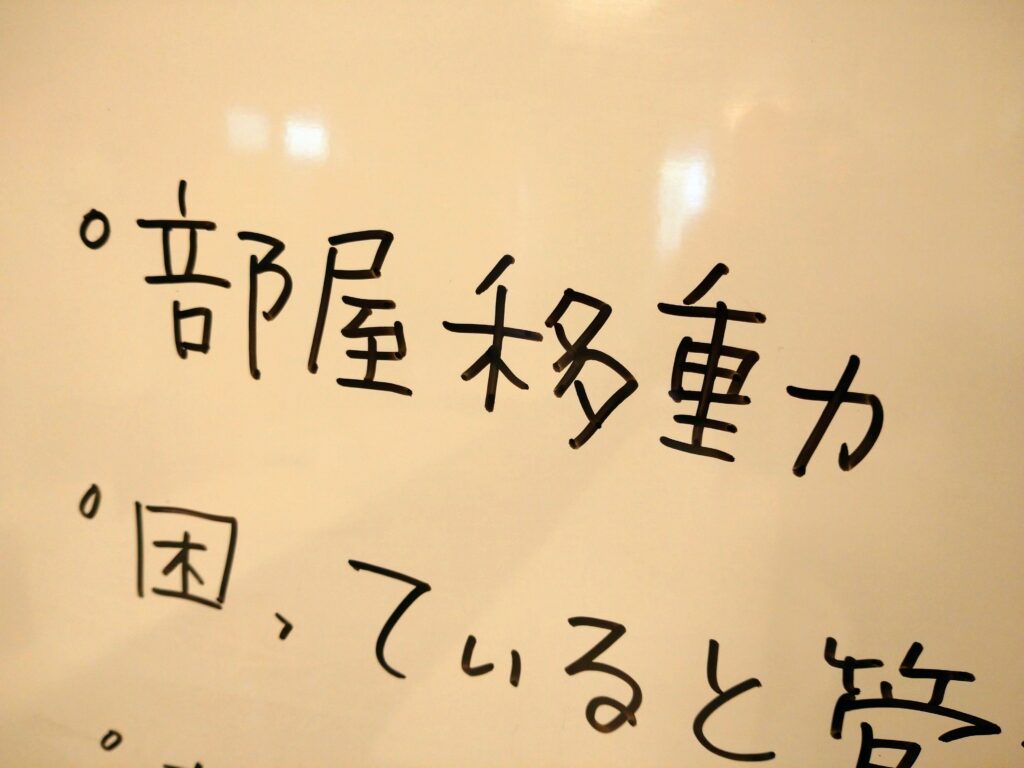 ○部屋移動
○困っていると管